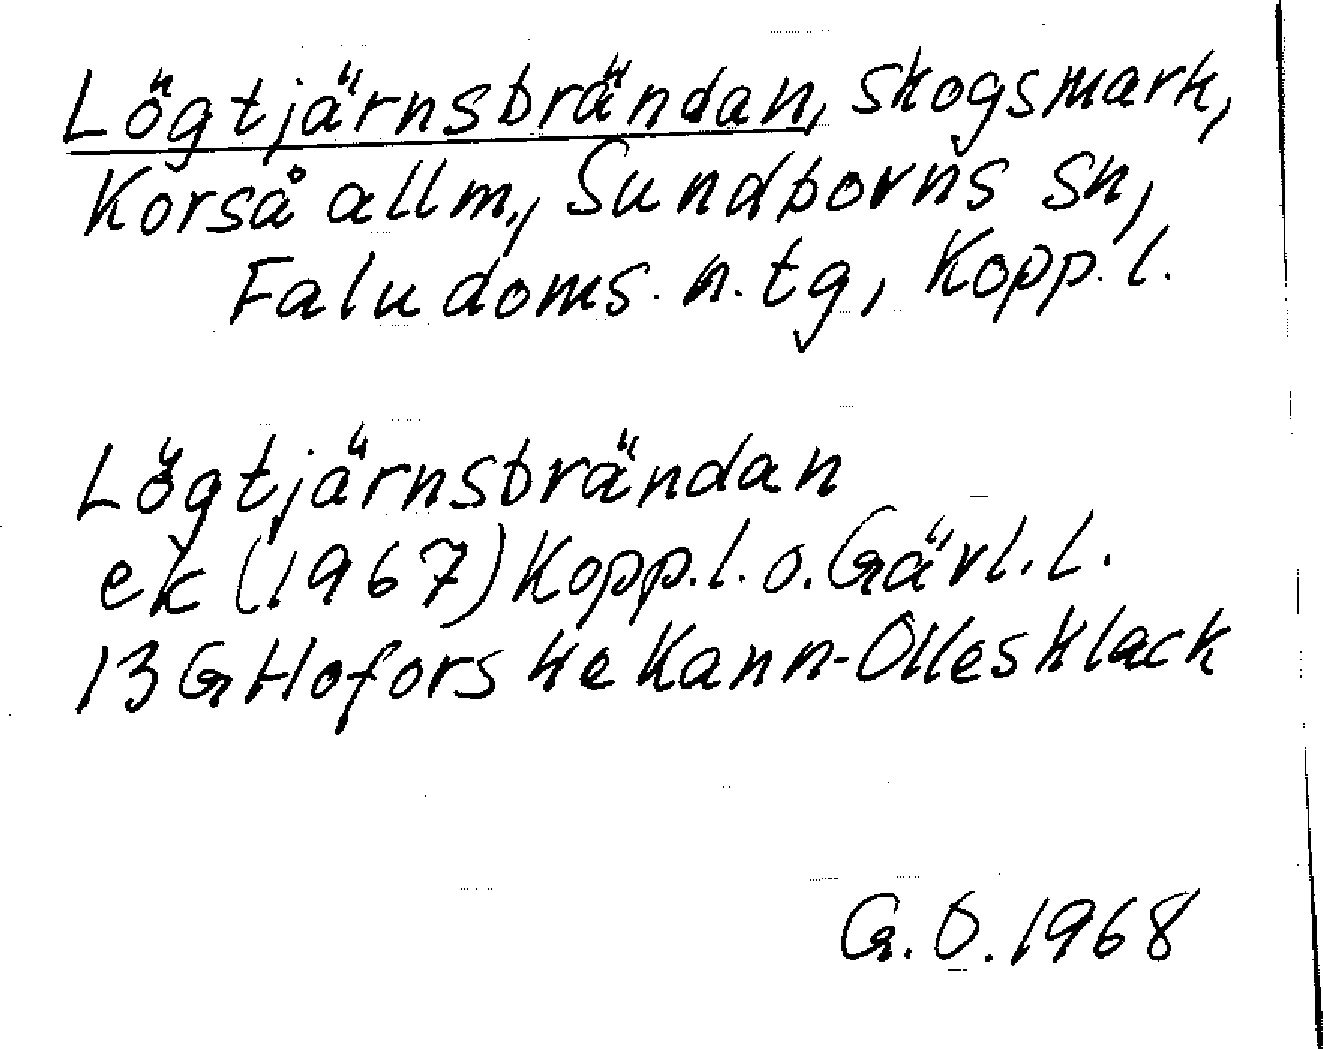 Lögtjärnsbrändan, skogsmark,
Korså allm., Sundborns sn,
Falu doms. n. tg, Kopp. l.
Lögtjärnsbrändan
ek (1967) Kopp. l. o. Gävl. l.
13 G Hofors 4e Kann-Olles klack
G. O. 1968